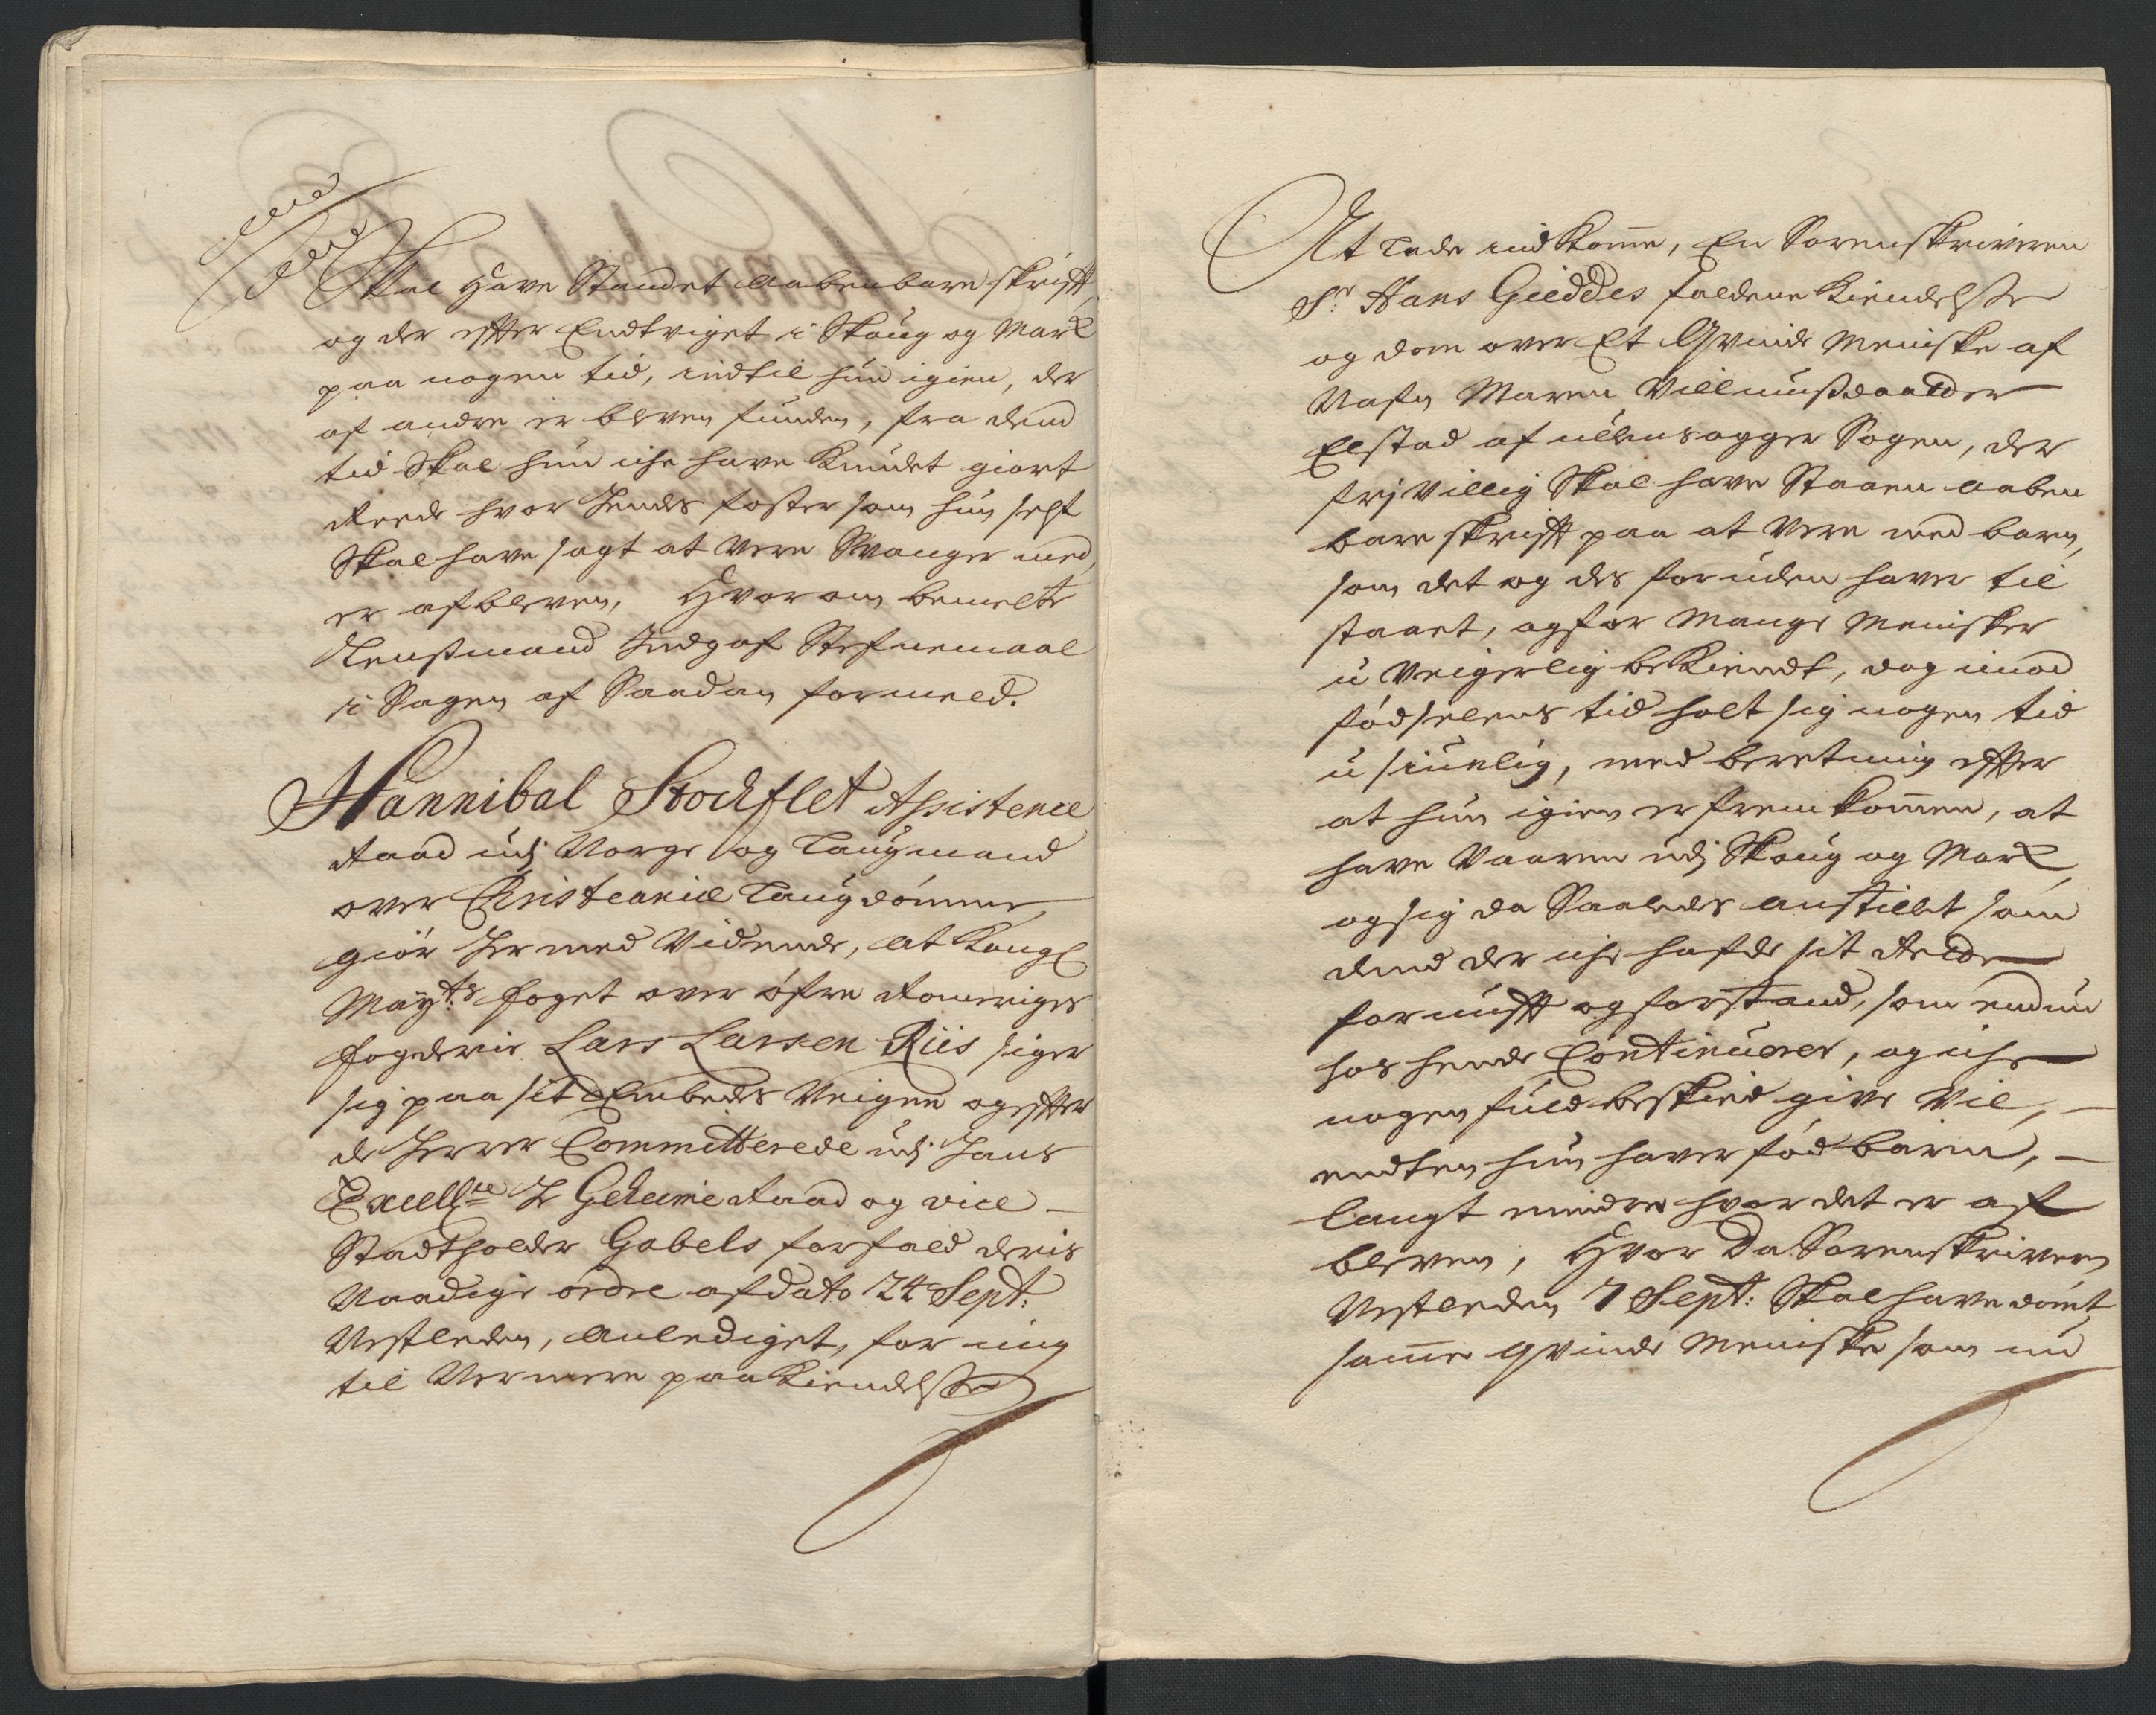 Skal have Standet aabenbare skrifft,
og der effter Endtviget i Skoug og Mark
paa nogen tid, indtil hun igien, der
af andre er bleven funden, fra dend
tid Skal hun iche have kundet giort
Reede hvor hendes foster som hun selst
Skal have sagt at vere Svanger med,
er afbleven, Hvor om bemelte
Lensmand Indgaf Stefnemaal
i Sagen af Saadan formeld.
Hannibal Stockflet Assistence
Raad udj Norge og Laugmand
over Christianiæ Laugdømme,
giør her med Vidende, at Kongl
Mayts: foget over øfre Romeriges
fogderie Lars Larsen Riis siger
sig paa sit Embeds Veigne og effter
de herrer Committerede udj hans
Excellce Hr Geheime Raad og vice
Stadtholder Gabels forfald deris
Naadige ordre af dato 24 Sept:
Nestleden, anlediget, for mig
til Nermere paakiendelsse
At lade indkomme, En Sorenskriveren
Sr Hans Gieddes faldene kiendelsse
og dom over Et Qvinde Meniske af
Nafn Maren Villumsdaatter
Elstad af Ullensagger Sogen, der
frj villig Skal have Staaen aaben
bare skrifft paa at Vere med barn,
som det og des foruden haver til
staaet, og for Mange Menisker
u veigerlig bekiendt, dog imod
fødselens tid holt sig nogen tid
u siunlig, med beretning effter
at hun igien er fremkommen, at
have Vaaren udj Skoug og Mark,
og sig da Saaledes anstillet som
dend der iche hafde sit Rette
fornufft og forstand, som endnu
hos hende Continuerer, og iche
nogen fuld beskeed give vil,
endten hun haver fød barn,
langt mindre hvor det er af
bleven, Hvor da Sorenskriveren
Nestleden 7 Sept: Skal have dømt
samme Qvinde Meniske som nu